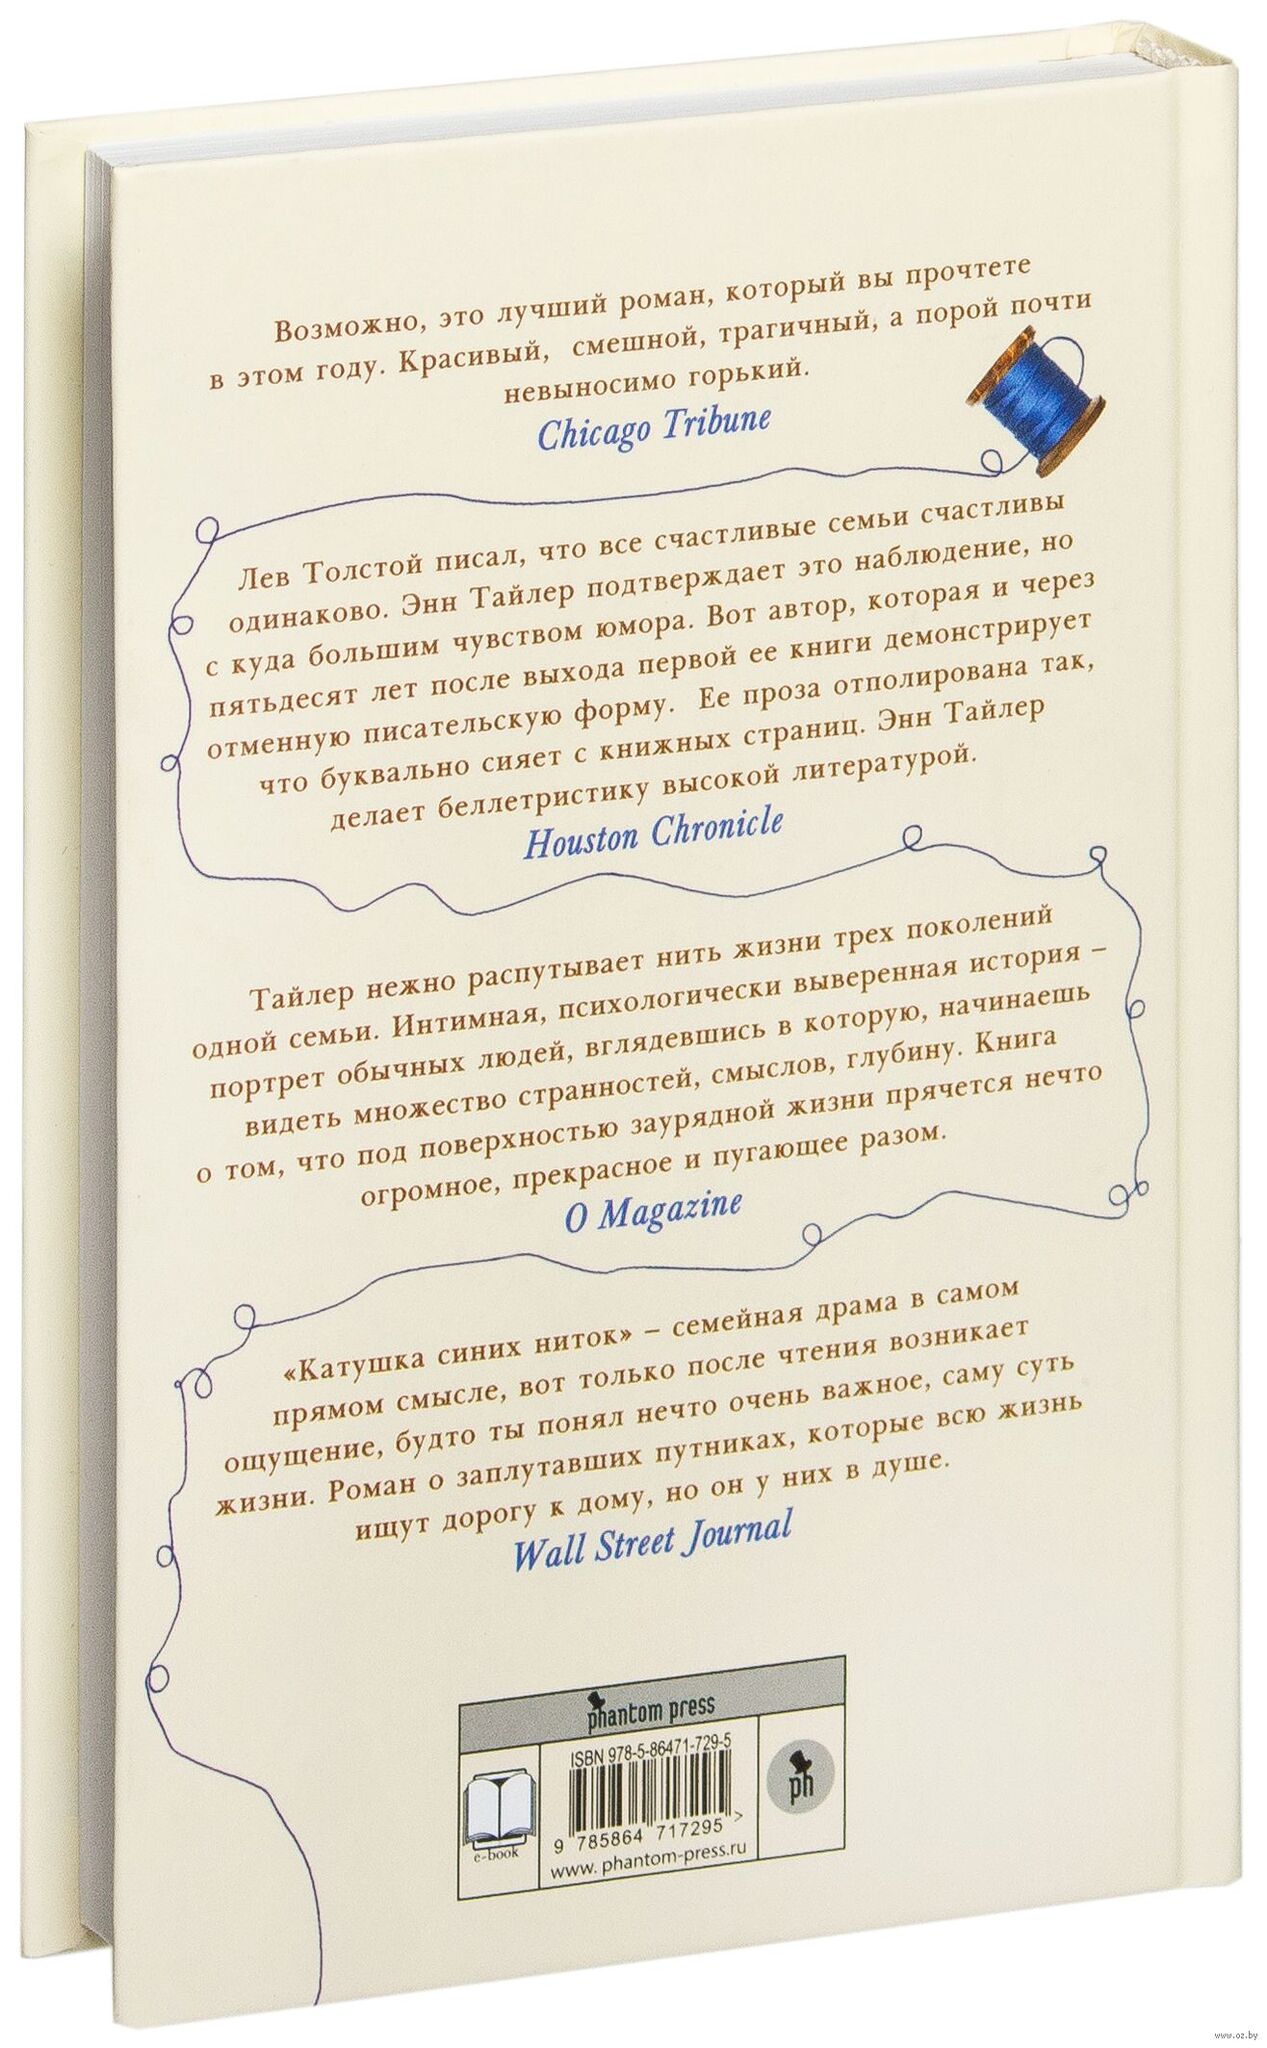 Возможно, это лучший роман, который вы прочтете
в этом году. Красивый, смешной, трагичный, а порой почти
невыносимо горький.
Chicago Tribune
Лев Толстой писал, что все счастливые семьи счастливы
одинаково. Энн Тайлер подтверждает это наблюдение, но
с куда большим чувством юмора. Вот автор, которая и через
пятьдесят лет после выхода первой ее книги демонстрирует
отменную писательскую форму. Ее проза отполирована так,
что буквально сияет с книжных страниц. Энн Тайлер
делает беллетристику высокой литературой.
Houston Chronicle
Тайлер нежно распутывает нить жизни трех поколений
одной семьи. Интимная, психологически выверенная история –
портрет обычных людей, вглядевшись в которую, начинаешь
видеть множество странностей, смыслов, глубину. Книга
о том, что под поверхностью заурядной жизни прячется нечто
огромное, прекрасное и пугающее разом.
O Magazine
«Катушка синих ниток» – семейная драма в самом
прямом смысле, вот только после чтения возникает
ощущение, будто ты понял нечто очень важное, саму суть
жизни. Роман о заплутавших путниках, которые всю жизнь
ищут дорогу к дому, но он у них в душе.
Wall Street Journal
phantom press
ISBN 978-5-86471-729-5
9 785864 717295 >
www.phantom-press.ru
e-book
ph
www.oz.by